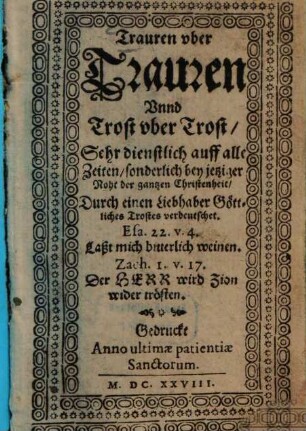 Trauren vber
Trauren
Vnnd
Trost vber Trost/
Sehr dienstlich auff alle
Zeiten/sonderlich bey jetziger
Noht der gantzen Christenheit/
Durch einen Liebhaber Gött-
liches Trostes verdeutschet.
Esa. 22. v. 4.
Laßt mich bitterlich weinen.
Zach. 1. v. 17.
Der HERR wird Zion
wider trösten.
Gedruckt
Anno ultimæ patientiæ
Sanctorum.
M. DC. XXVIII.